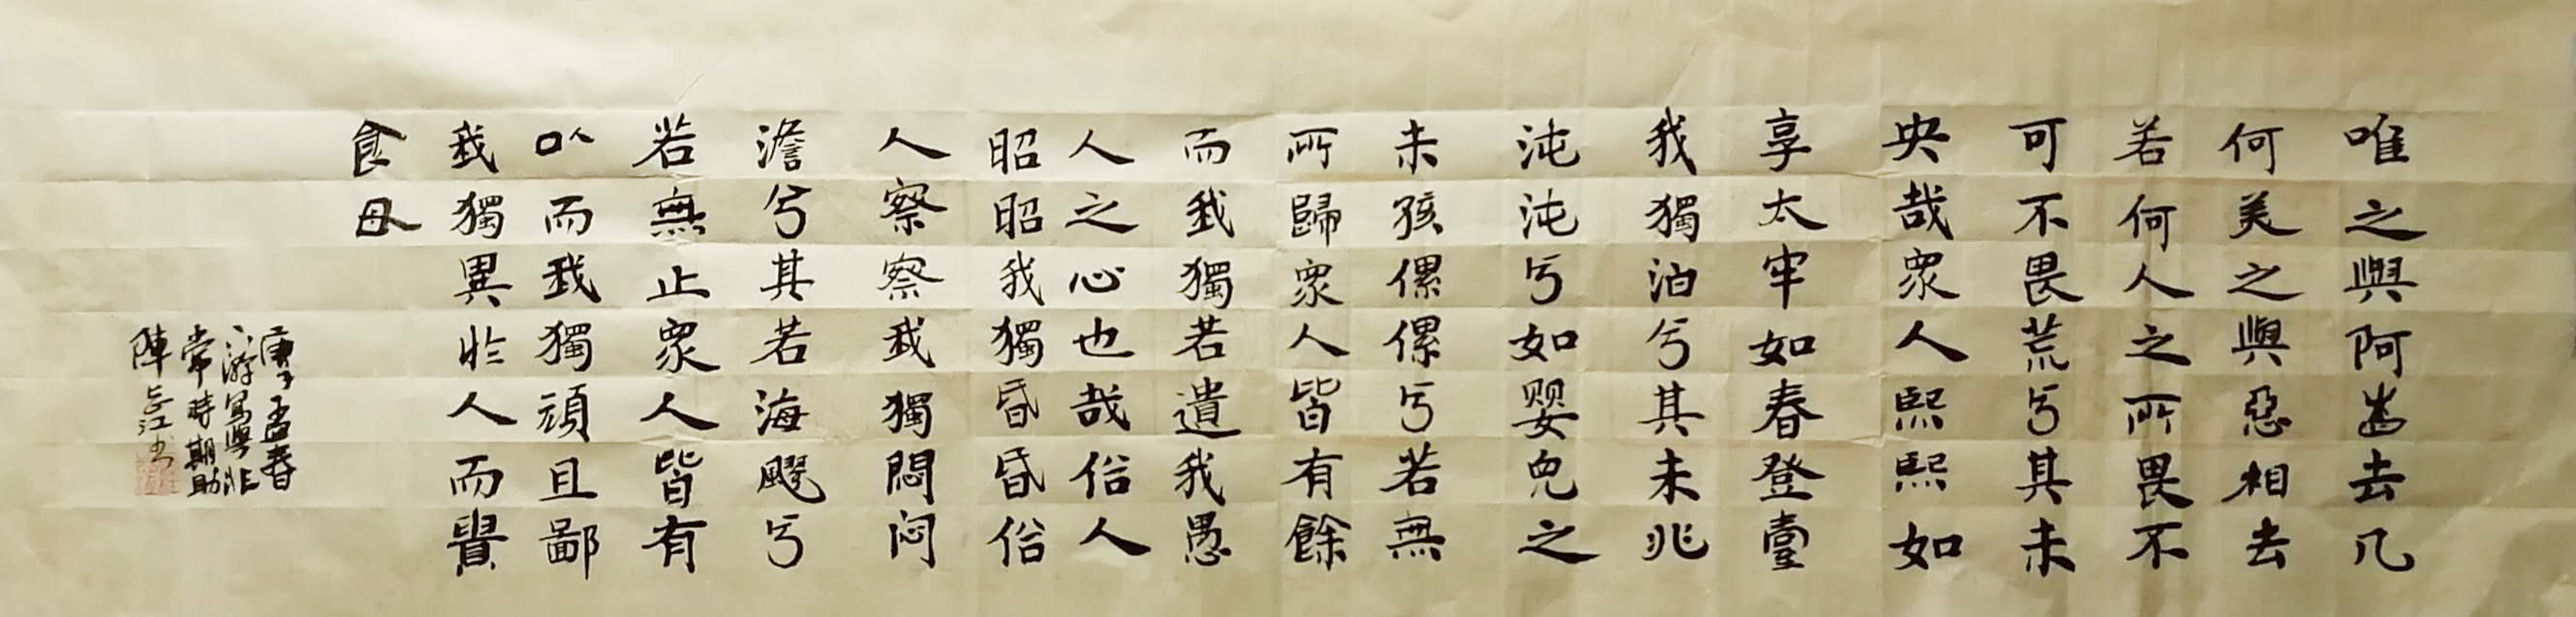 唯之與阿出去几
何美之與惡相去
若何人之所畏不
可不畏荒兮其未
央哉眾人熙熙如
享太牢如春登臺
我獨泊兮其未兆
沌沌兮如嬰兒之
未孩傫傫兮若無
所歸眾人皆有餘
而我獨若遺我愚
人之心也哉俗人
昭昭我獨昏昏俗
人察察我獨悶闷
澹兮其若海飂兮
若無止眾人皆有
以而我獨頑且鄙
我獨異於人而貴
食母
庚子孟春
游寫與非
常時期
陣江书